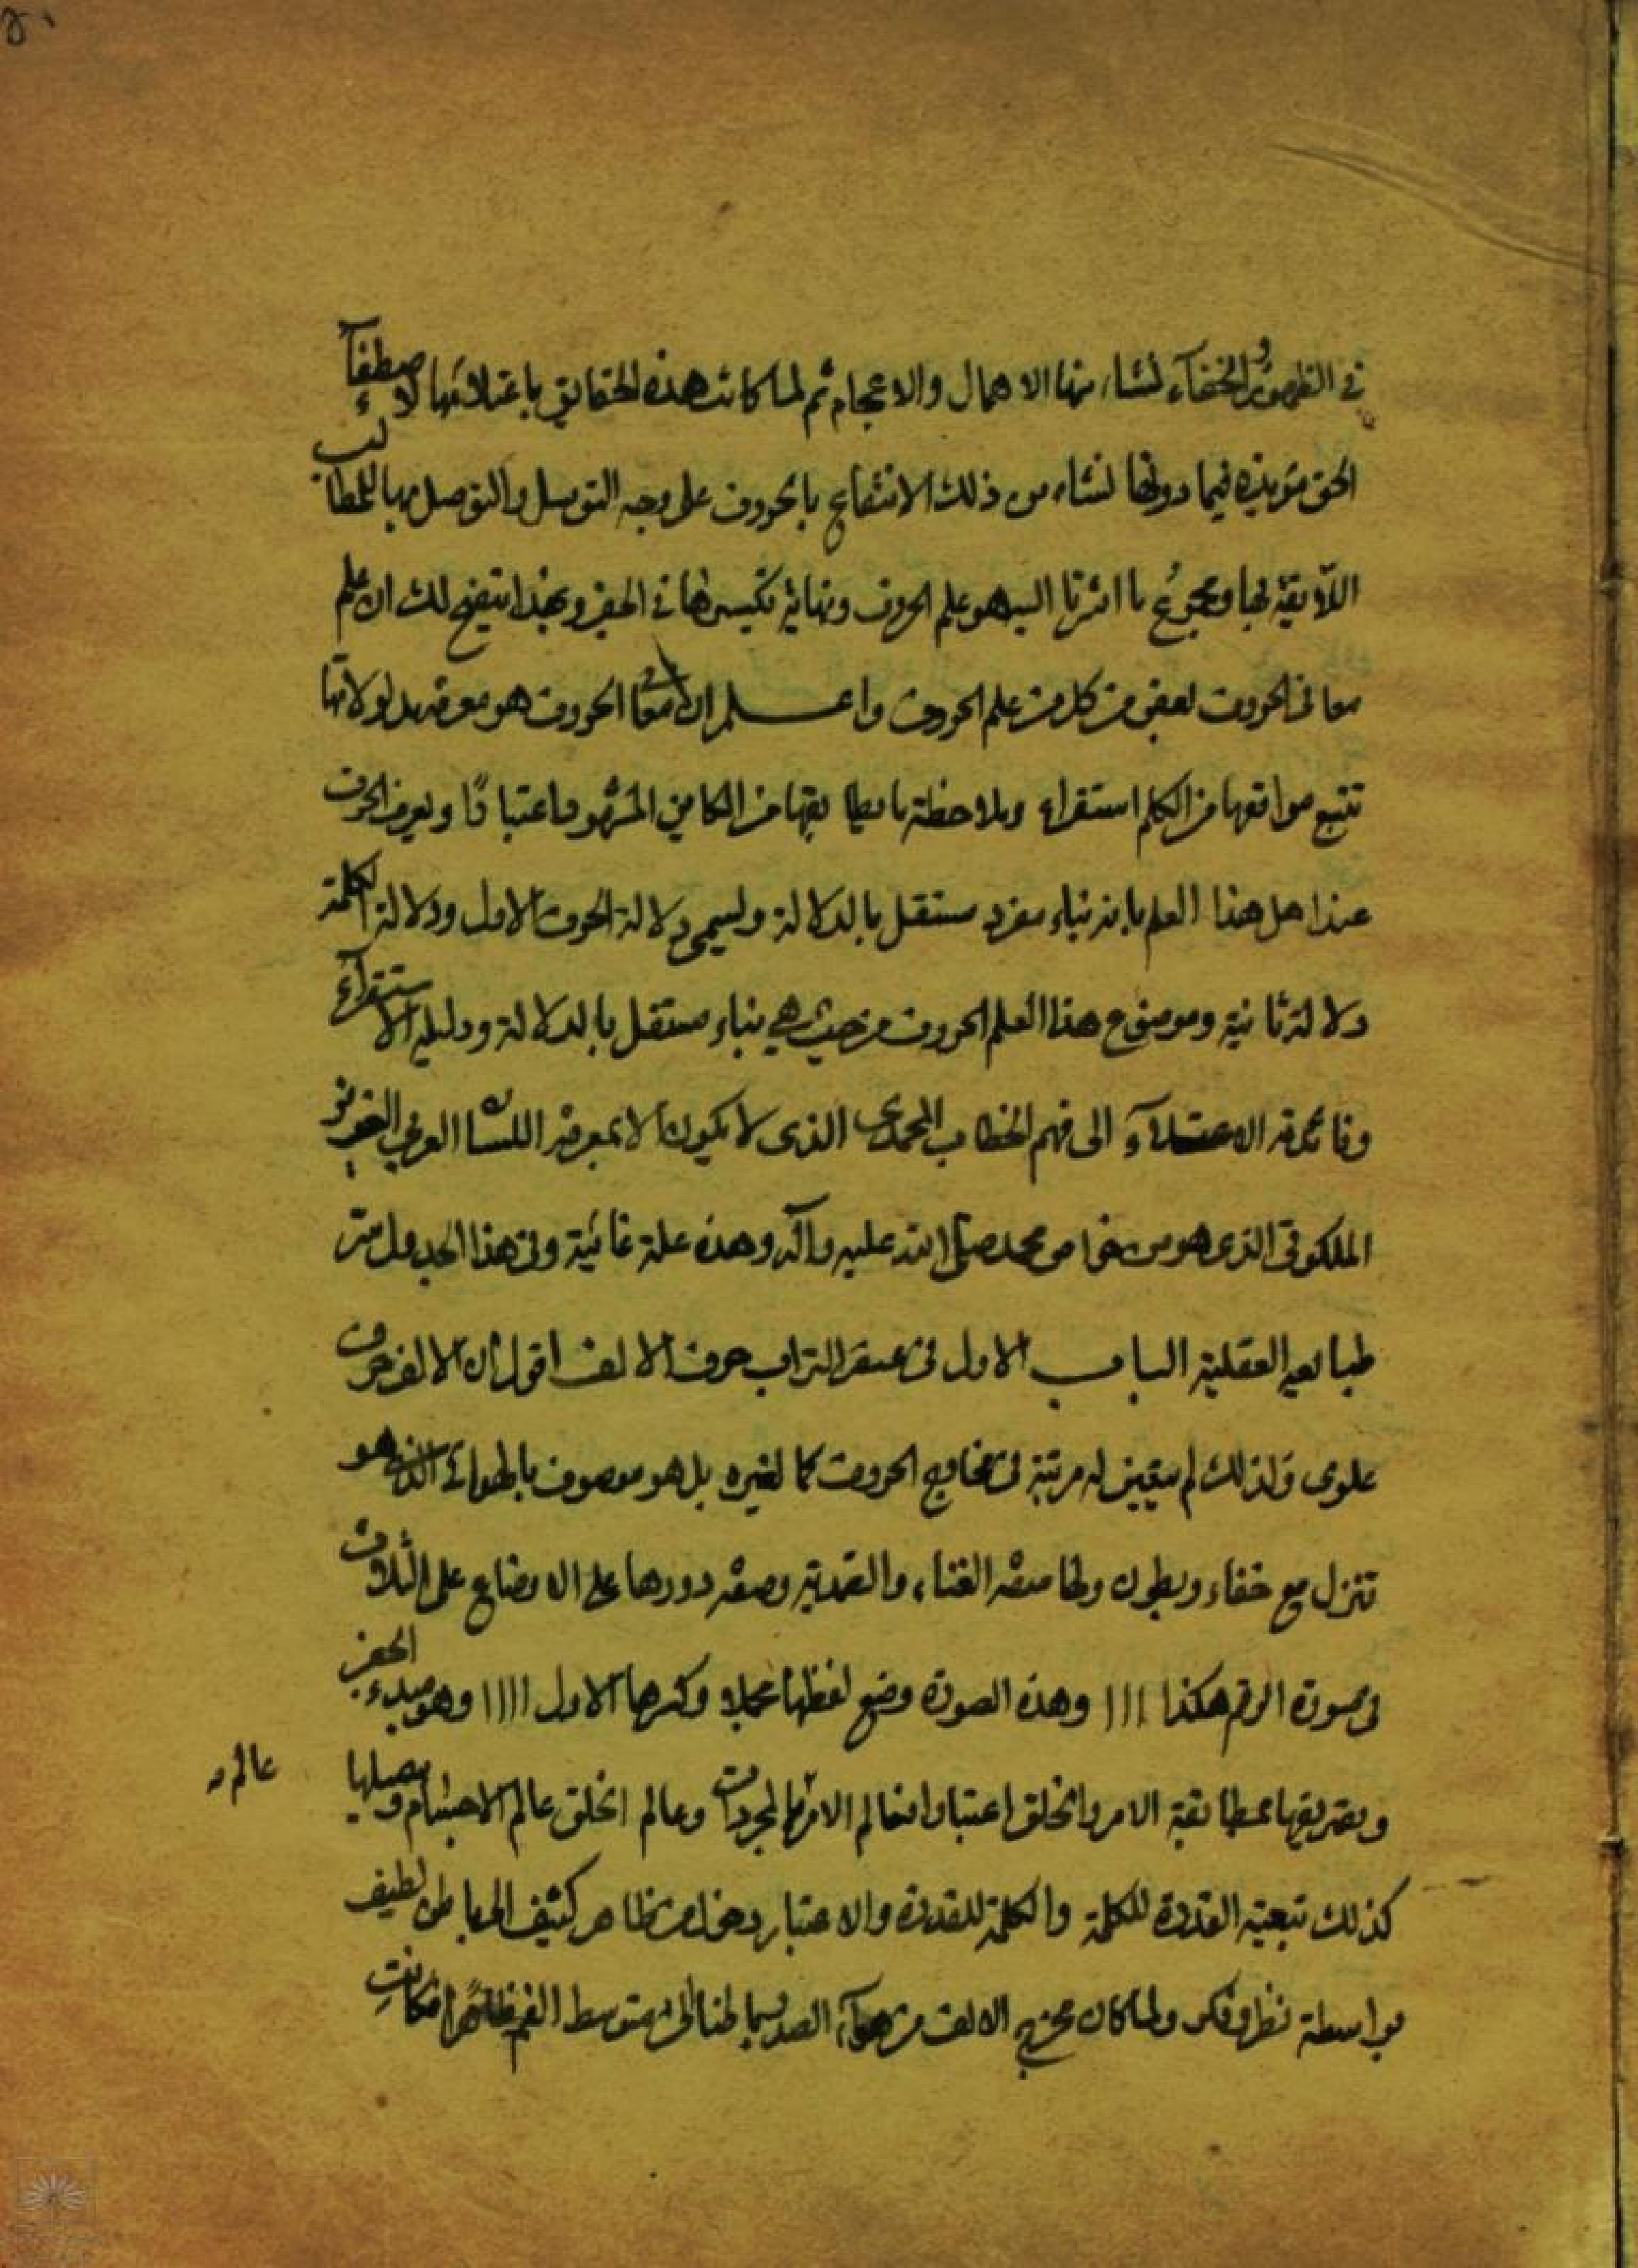 في الظهور والخفآء لنشاء منها الاهمال والاعجام ثم لما كانت هذه الحقايق باعتلائها لاصطفآء
الحق مؤيذه فيما دونها لنشاء من ذلك الانتفاع بالحروف على وجه التوسل والتوصل بها للمطالب
اللآيقة بها ومجموع ما اشرنا اليه هو علم الحروف ونهاية تكسيرها في الجفر وبهذا يتضح لك ان علم
معاني الحروف بعض من كل من علم الحروف واعلم ان معاني الحروف هو معرفة مدلولاتها
تتبع مواقعها من الكلم استقراء وملاحظة ما يطابقها من الكامن المشهود اعتبارًا ويعرف الحرف
عند اهل هذا العلم بانه بناء مفرد مستقل بالدلالة ويسمى دلالة الحروف الاول ودلالة الكلمة
دلالة ثانية وموضوع هذا العلم الحروف من حيث هي بناء مستقل بالدلالة ودليله الاستقرآء
وفائدته الاعتلآء الى فهم الخطاب المحمدى الذى لا يكون الا بمعرفة اللسان العربي العزيز
الملكوتي الذى هو من خواص محمد صلى الله عليه وآله وهذه علة غائية وفي هذا الجدول من
طبايعه العقلية الباب الاول في عنصر التراب حرف الالف اقول ان الالف حرف
علوى ولذلك لم يتعين له مرتبة في مخارج الحروف كما لغيره بل هو موصوف بالهوائي الذى هو
تنزل مع خفاء وبطون ولها صفة الغناء والصمدية وصفة دورها على الاوضاع على الثلاث
في صورة الرقم هكذا ااا وهذه الصورة وضع لفظها مجملا وكسرها الاول اااا وهو مبدء الجفر
وتصريفها بمطابقة الامر والخلق اعتبار ان عالم الامر عالم المجردات وعالم الخلق عالم الاجسام وتفصيلها
عالم
كذلك تبعية القدرة للكلمة والكلمة للقدرة والاعتبار دخول من ظاهر كثيف الى باطن لطيف
بواسطة نظر وفكر ولما كان مخرج الالف من هوآء الصدر باطنا الى متوسط الفم ظاهرًا فكانت